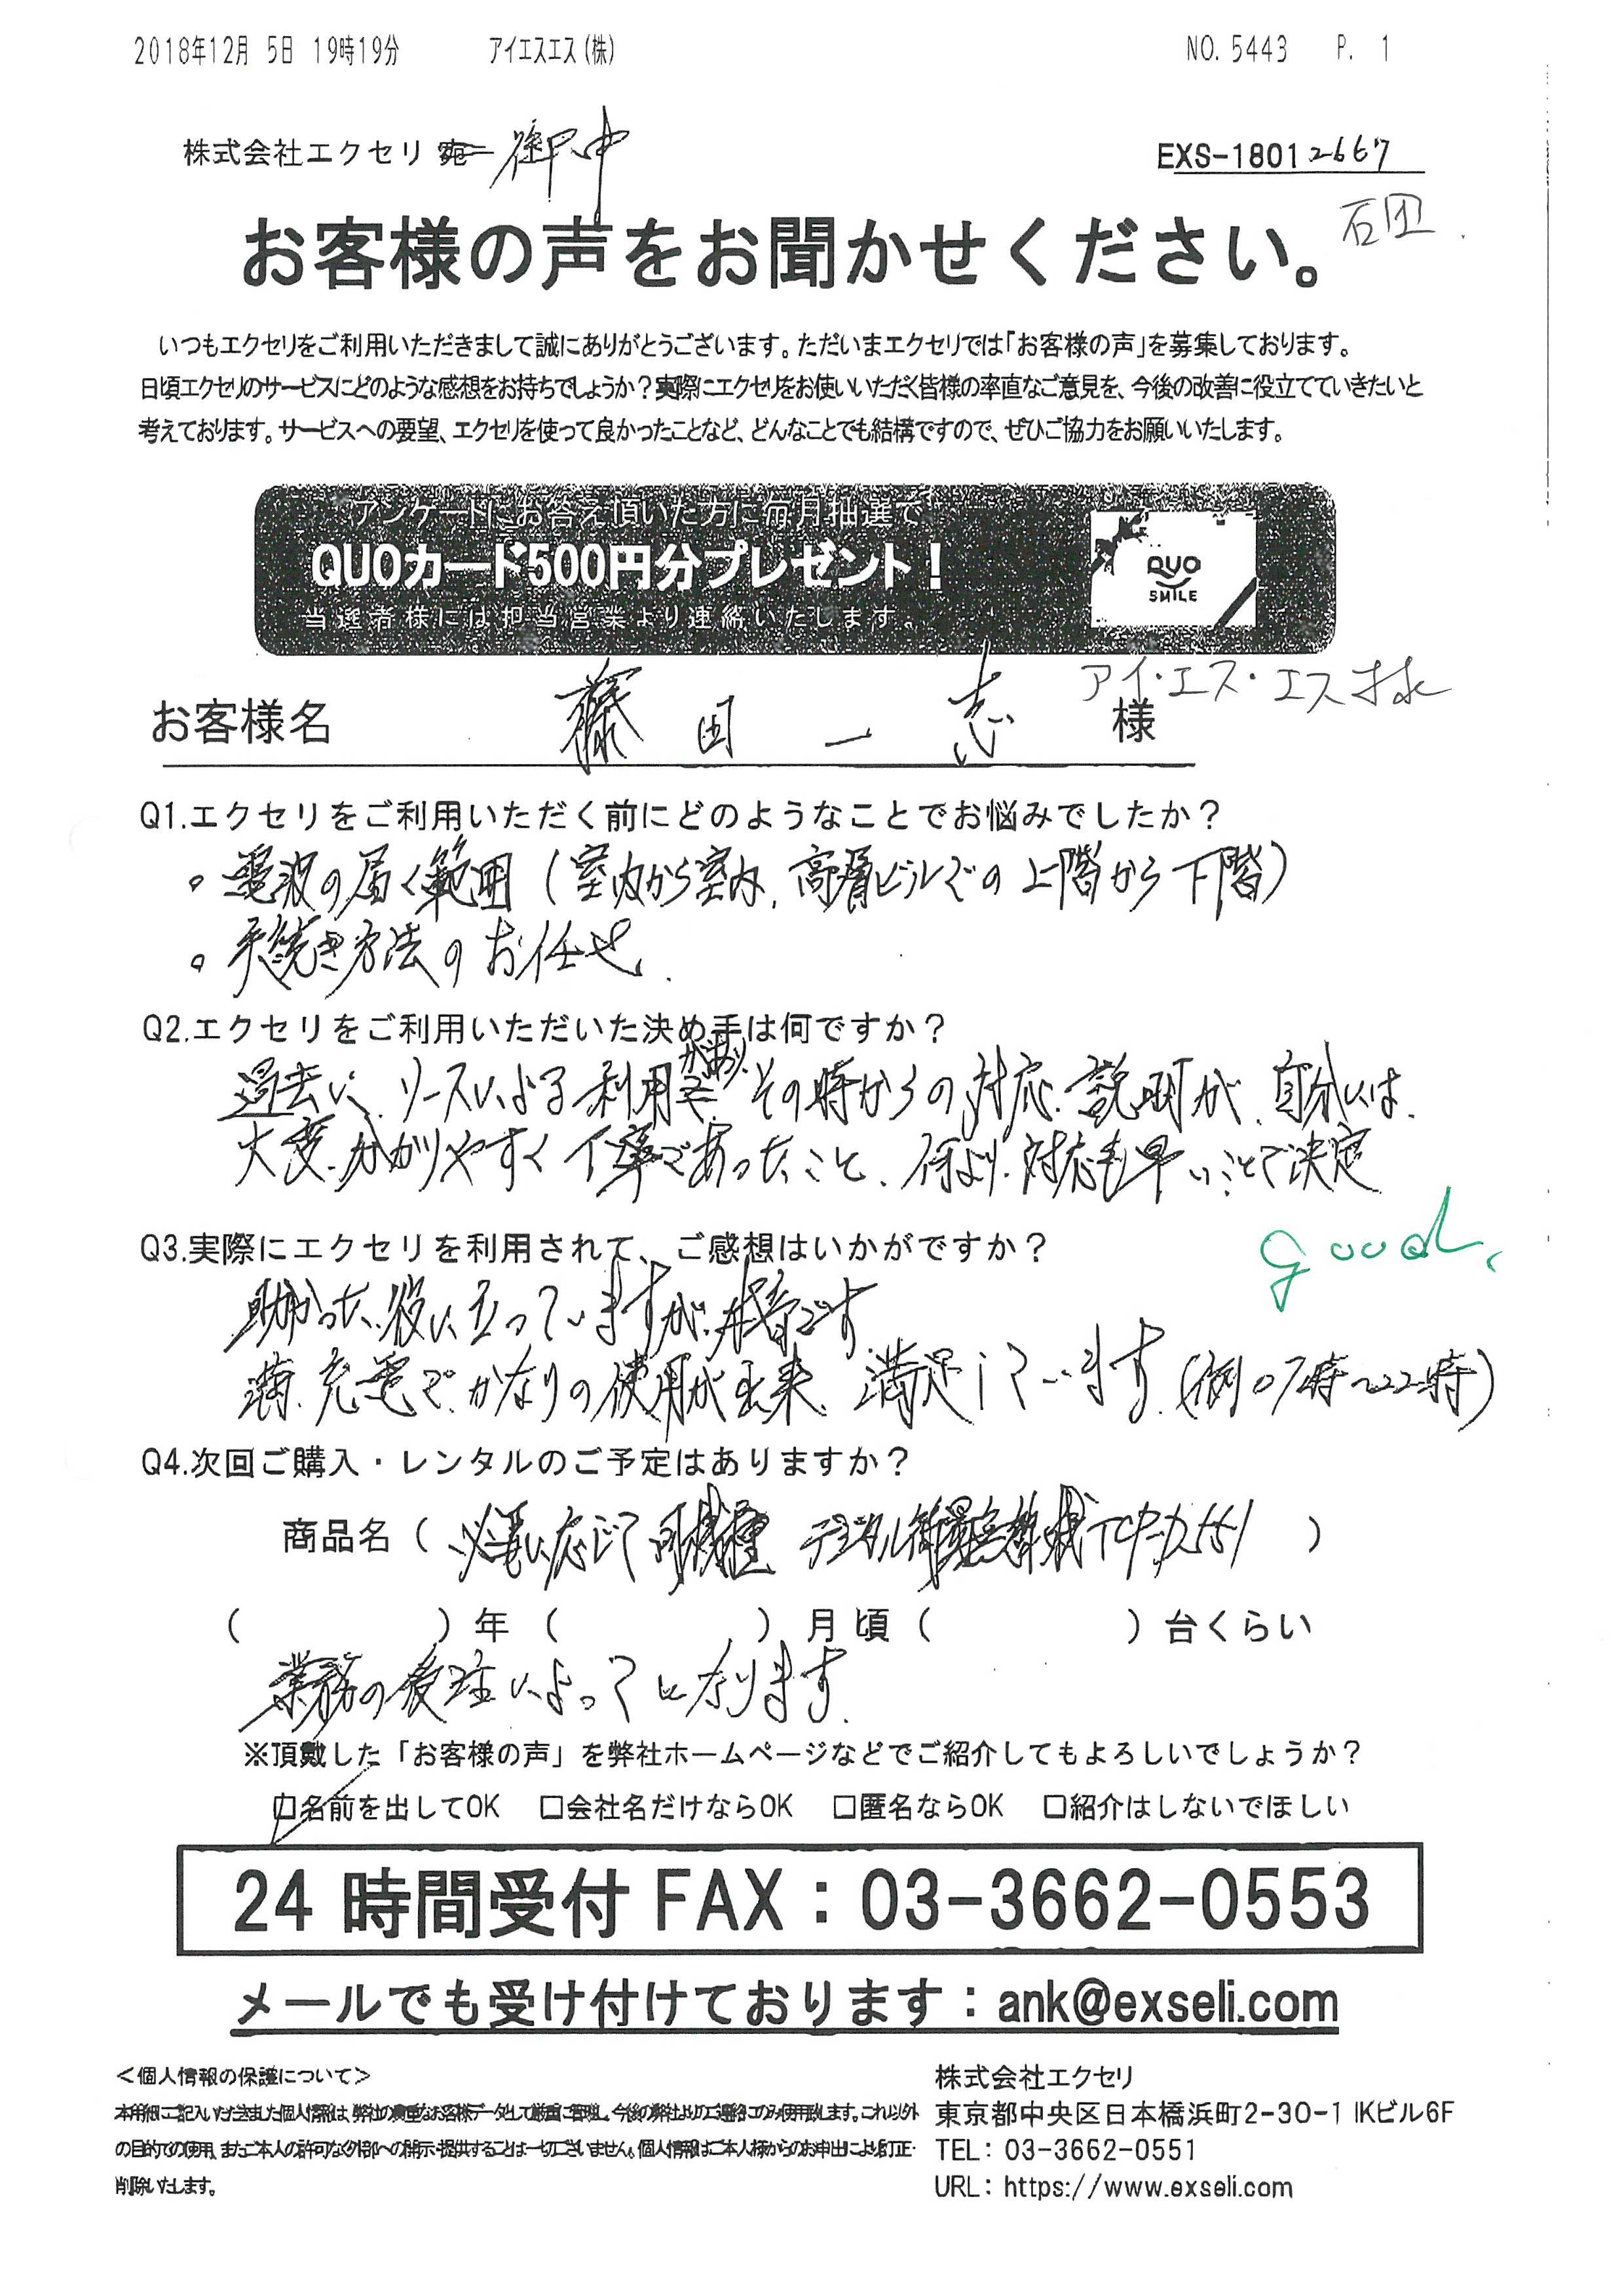 2018年12月 5日 19時19分 アイエスエス(株) NO. 5443 P. 1
株式会社エクセリ 宛 御中
EXS-18012667
お客様の声をお聞かせください。
いつもエクセリをご利用いただきまして誠にありがとうございます。ただいまエクセリでは「お客様の声」を募集しております。
日頃エクセリのサービスにどのような感想をお持ちでしょうか?実際にエクセリをお使いいただく皆様の率直なご意見を、今後の改善に役立てていきたいと
考えております。サービスへの要望、エクセリを使って良かったことなど、どんなことでも結構ですので、ぜひご協力をお願いいたします。
アンケートにお答え頂いた方に毎月抽選で
QUOカード500円分プレゼント!
当選者様には担当営業より連絡いたします。
QUO
SMILE
アイ・エス・エス
お客様名 藤田一志 様
Q1.エクセリをご利用いただく前にどのようなことでお悩みでしたか?
。電波の届く範囲(室内から室内、高層ビルでの上階から下階)
。手続き方法のお任せ.
Q2.エクセリをご利用いただいた決め手は何ですか?
過去に、リースによる利用があり、その時からの対応、説明が、自分には、
大変、分かりやすく丁寧であったこと、何より、対応も早いことで決定
Q3.実際にエクセリを利用されて、ご感想はいかがですか?
good.
助かった、役に立っていますが、です
満充電でかなりの使用が出来、満足しています。(例07時〜22時)
Q4.次回ご購入・レンタルのご予定はありますか?
商品名(必要に応じて同機種 デジタル簡易無線機 )
( )年( )月頃( )台くらい
業務の受注によってになります.
※頂戴した「お客様の声」を弊社ホームページなどでご紹介してもよろしいでしょうか?
□名前を出してOK □会社名だけならOK □匿名ならOK □紹介はしないでほしい
24 時間受付 FAX:03-3662-0553
メールでも受け付けております:ank@exseli.com
<個人情報の保護について>
本用紙にご記入いただきました個人情報は、弊社の貴重なお客様データとして厳重に管理し、今後の弊社よりのご連絡にのみ使用致します。これ以外
の目的での使用、またご本人の許可なく外部への開示・提供することは一切ございません。個人情報はご本人様からのお申出により訂正・
削除いたします。
株式会社エクセリ
東京都中央区日本橋浜町2-30-1 IKビル6F
TEL:03-3662-0551
URL:https://www.exseli.com